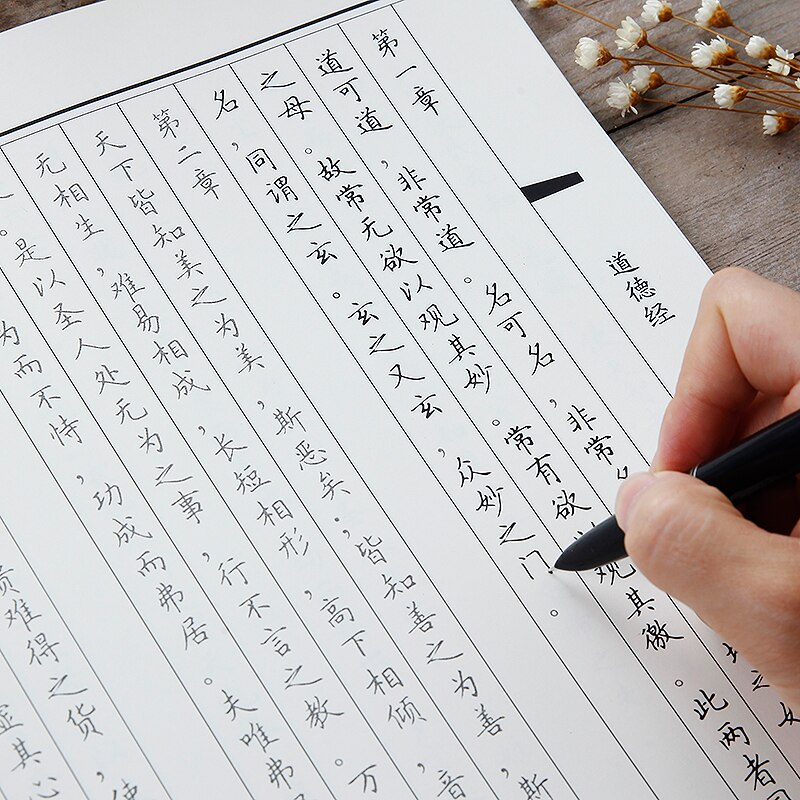 道德经
第一章
道可道，非常道。名可名，非常
之
之母。故常无欲以观其妙。常有欲以观其徼。此两者同
名，同谓之玄。玄之又玄，众妙之门。
第二章
天下皆知美之为美，斯恶矣；皆知善之为善，斯
无相生，难易相成，长短相形，高下相倾，音
。是以圣人处无为之事，行不言之教。万
为而不恃，功成而弗居。夫唯弗
贵难得之货，使
虚其心